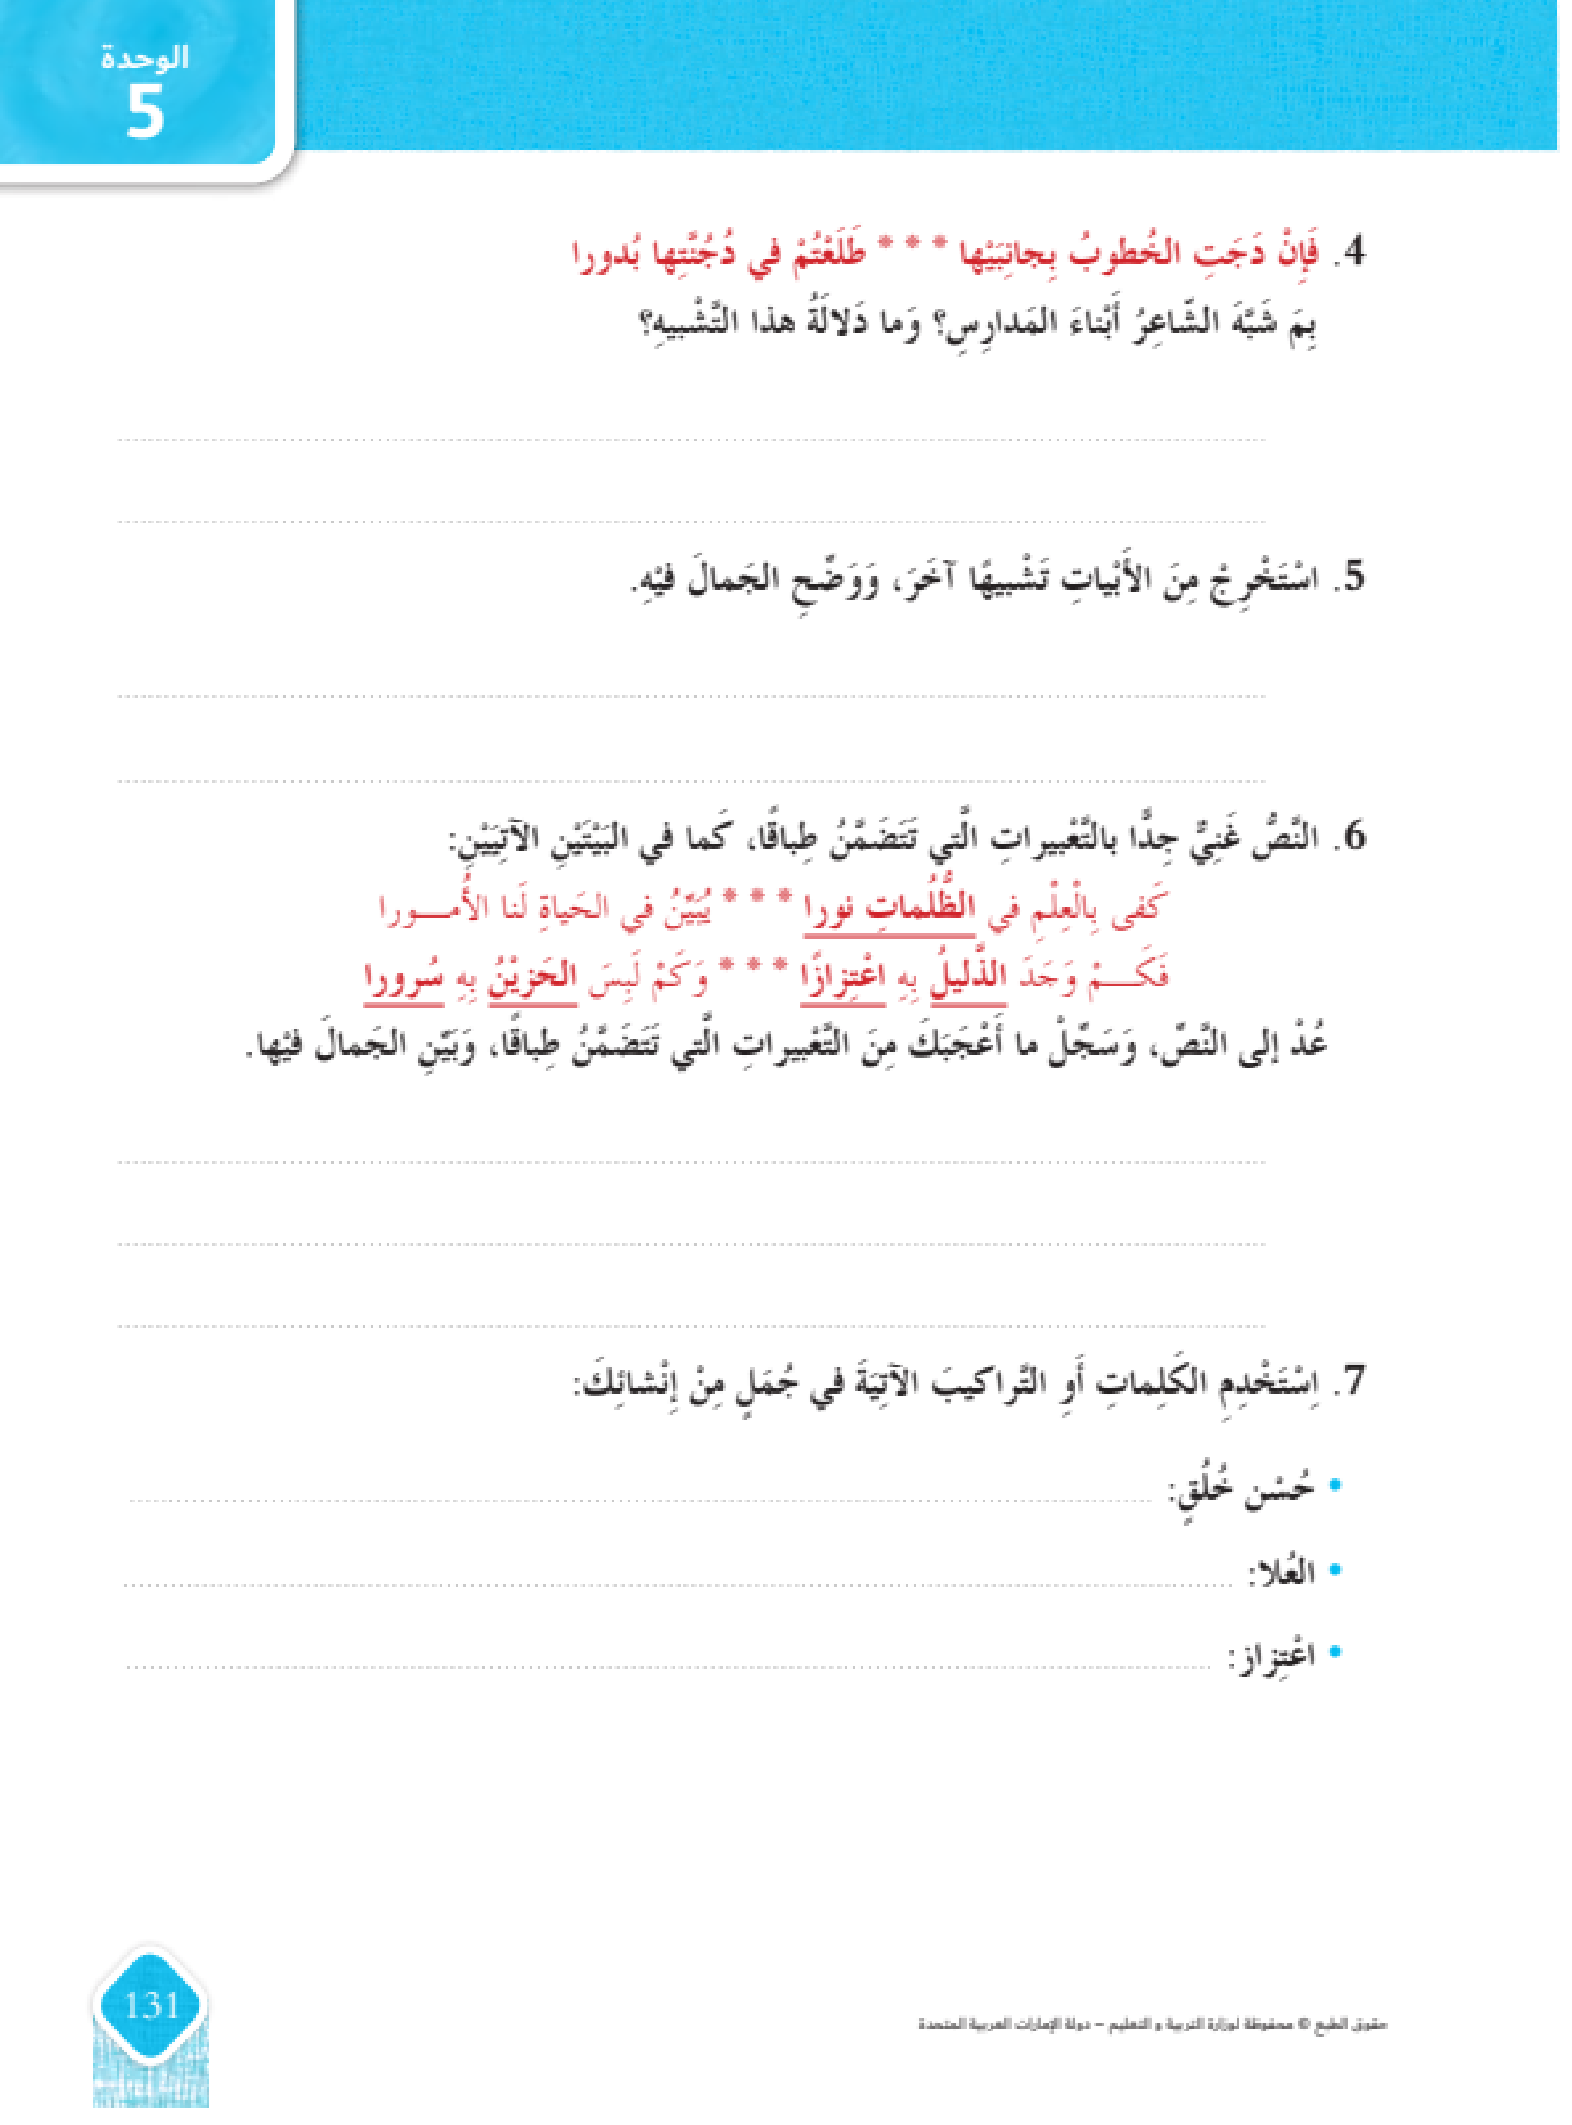 الوحدة
5
4. فَإِنْ دَجَتِ الخُطوبُ بِجانِبَيْها * * * طَلَعْتُمْ في دُجُنَّتِها بُدورا
بِمَ شَبَّهَ الشّاعِرُ أَبْناءَ المَدارِسِ؟ وَما دَلالَةُ هذا التَّشْبيهِ؟
5. اسْتَخْرِجْ مِنَ الأَبْياتِ تَشْبيهًا آخَرَ، وَوَضِّحِ الجَمالَ فيْهِ.
6. النَّصُّ غَنِيٌّ جِدًّا بالتَّعْبيراتِ الَّتي تَتَضَمَّنُ طِباقًا، كَما في البَيْتَيْنِ الآتِيَيْنِ:
كَفى بِالْعِلْمِ في الظُّلُماتِ نورا * * * يُبَيِّنُ في الحَياةِ لَنا الأُمـــورا
فَكَـــمْ وَجَدَ الذَّليلُ بِهِ اعْتِزازًا * * * وَكَمْ لَبِسَ الحَزيْنُ بِهِ سُرورا
عُدْ إلى النَّصِّ، وَسَجِّلْ ما أَعْجَبَكَ مِنَ التَّعْبيراتِ الَّتي تَتَضَمَّنُ طِباقًا، وَبَيّنِ الجَمالَ فيْها.
7. اِسْتَخْدِمِ الكَلِماتِ أَوِ التَّراكيبَ الآتِيَةَ في جُمَلٍ مِنْ إِنْشائِكَ:
• حُسْن خُلُقٍ:
• العُلا:
• اعْتِزاز:
حقوق الطبع © محفوظة لوزارة التربية و التعليم – دولة الإمارات العربية المتحدة
131